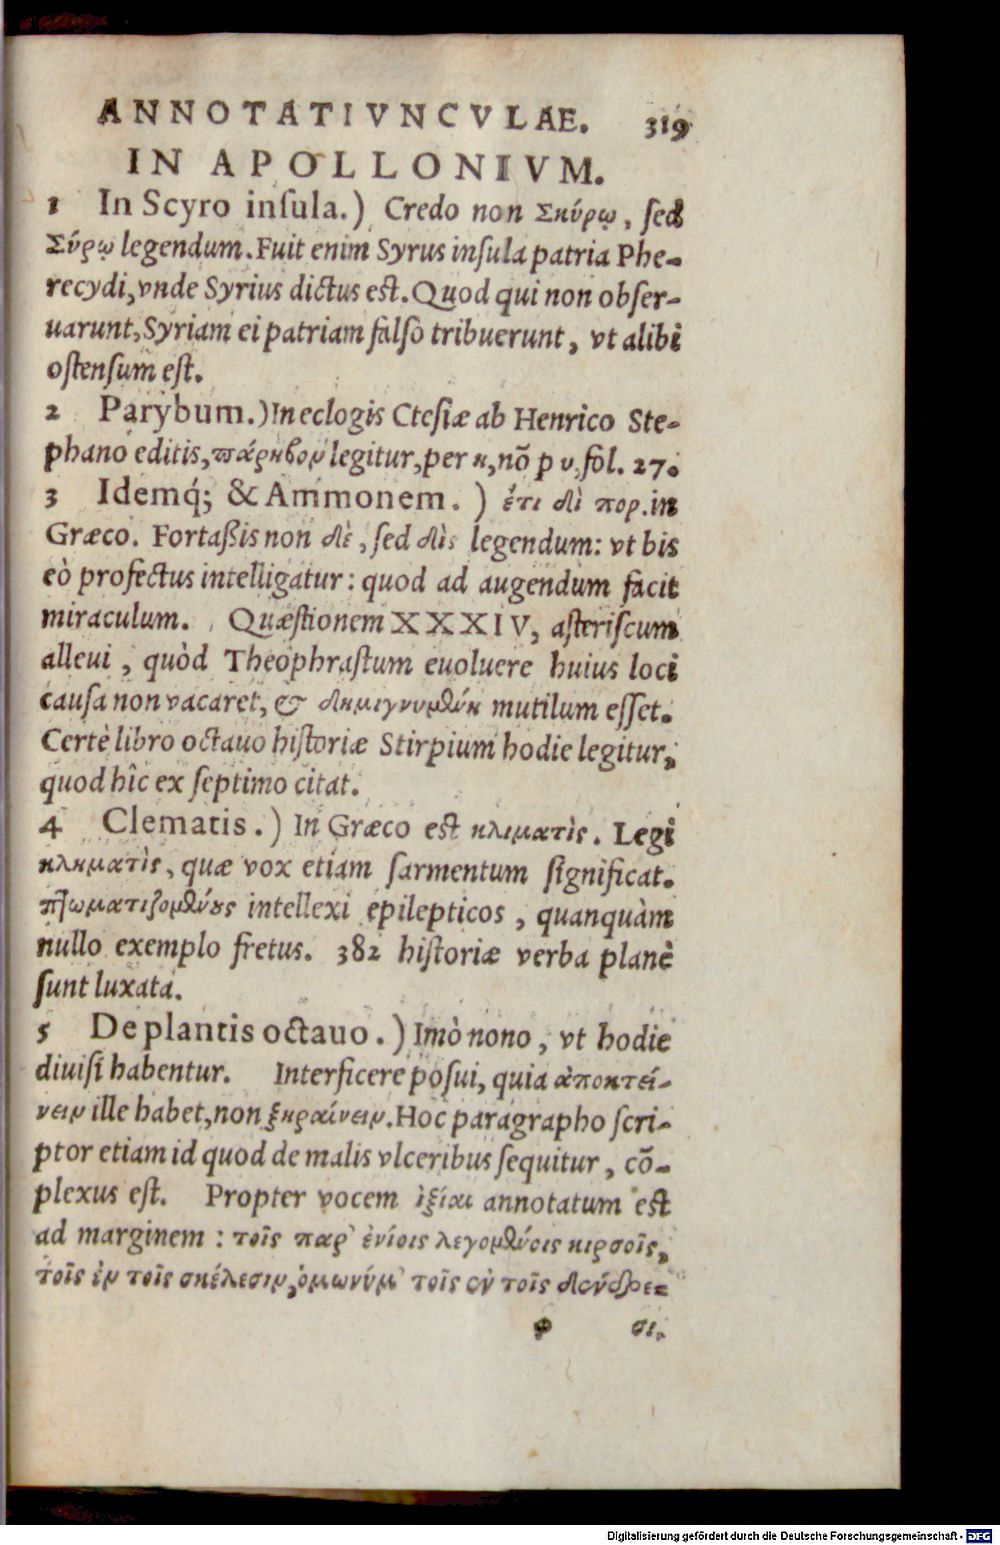 ANNOTATIVNCVLAE. 319
IN APOLLONIVM.
1 In Scyro inſula.) Credo non Σκύρῳ, ſed
Σύρῳ legendum. Fuit enim Syrus inſula patria Phe-
recydi, vnde Syrius dictus eſt. Quod qui non obſer-
uarunt, Syriam ei patriam falſò tribuerunt, vt alibi
oſtenſum eſt.
2 Parybum.) In eclogis Cteſiæ ab Henrico Ste-
phano editis, πάρηβον legitur, per η, nõ p υ, fol. 27.
3 Idemq́; & Ammonem.) ἔτι δὲ πορ. in
Græco. Fortaßis non δὲ, ſed δὶς legendum: vt bis
eò profectus intelligatur: quod ad augendum facit
miraculum. Quæſtionem XXXIV, aſteriſcum
alleui, quòd Theophraſtum euoluere huius loci
cauſa non vacaret, & mutilum eſſet.
Certè libro octauo hiſtoriæ Stirpium hodie legitur,
quod hîc ex ſeptimo citat.
4 Clematis.) In Græco eſt κλιματὶς. Legi
κληματὶς, quæ vox etiam ſarmentum ſignificat.
πτωματιζομένους intellexi epilepticos, quanquàm
nullo exemplo fretus. 382 hiſtoriæ verba planè
ſunt luxata.
5 De plantis octauo.) Imò nono, vt hodie
diuiſi habentur. Interficere poſui, quia ἀποκτεί-
νειν ille habet, non ξηραίνειν. Hoc paragrapho ſcri-
ptor etiam id quod de malis vlceribus ſequitur, cõ-
plexus eſt. Propter vocem ἰξίαι annotatum eſt
ad marginem: τοῖς παρ' ἐνίοις λεγομένοις κιρσοῖς,
τοῖς ἐν τοῖς σκέλεσιν, ὁμωνύμ τοῖς ἐν τοῖς δένδρε-
φ σι.
Digitalisierung gefördert durch die Deutsche Forschungsgemeinschaft - DFG